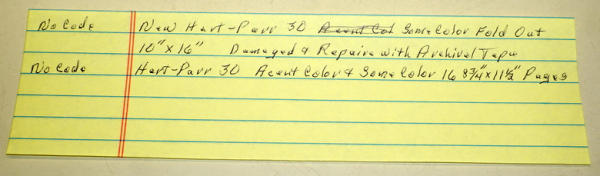 No Code New Hart-Parr 30 Acent Col Some Color Fold Out
10" x 16" Damaged & Repaire with Archival Tape
No Code Hart-Parr 30 Acent Color & Some Color 16 8 3/4" x 11 1/2" Pages